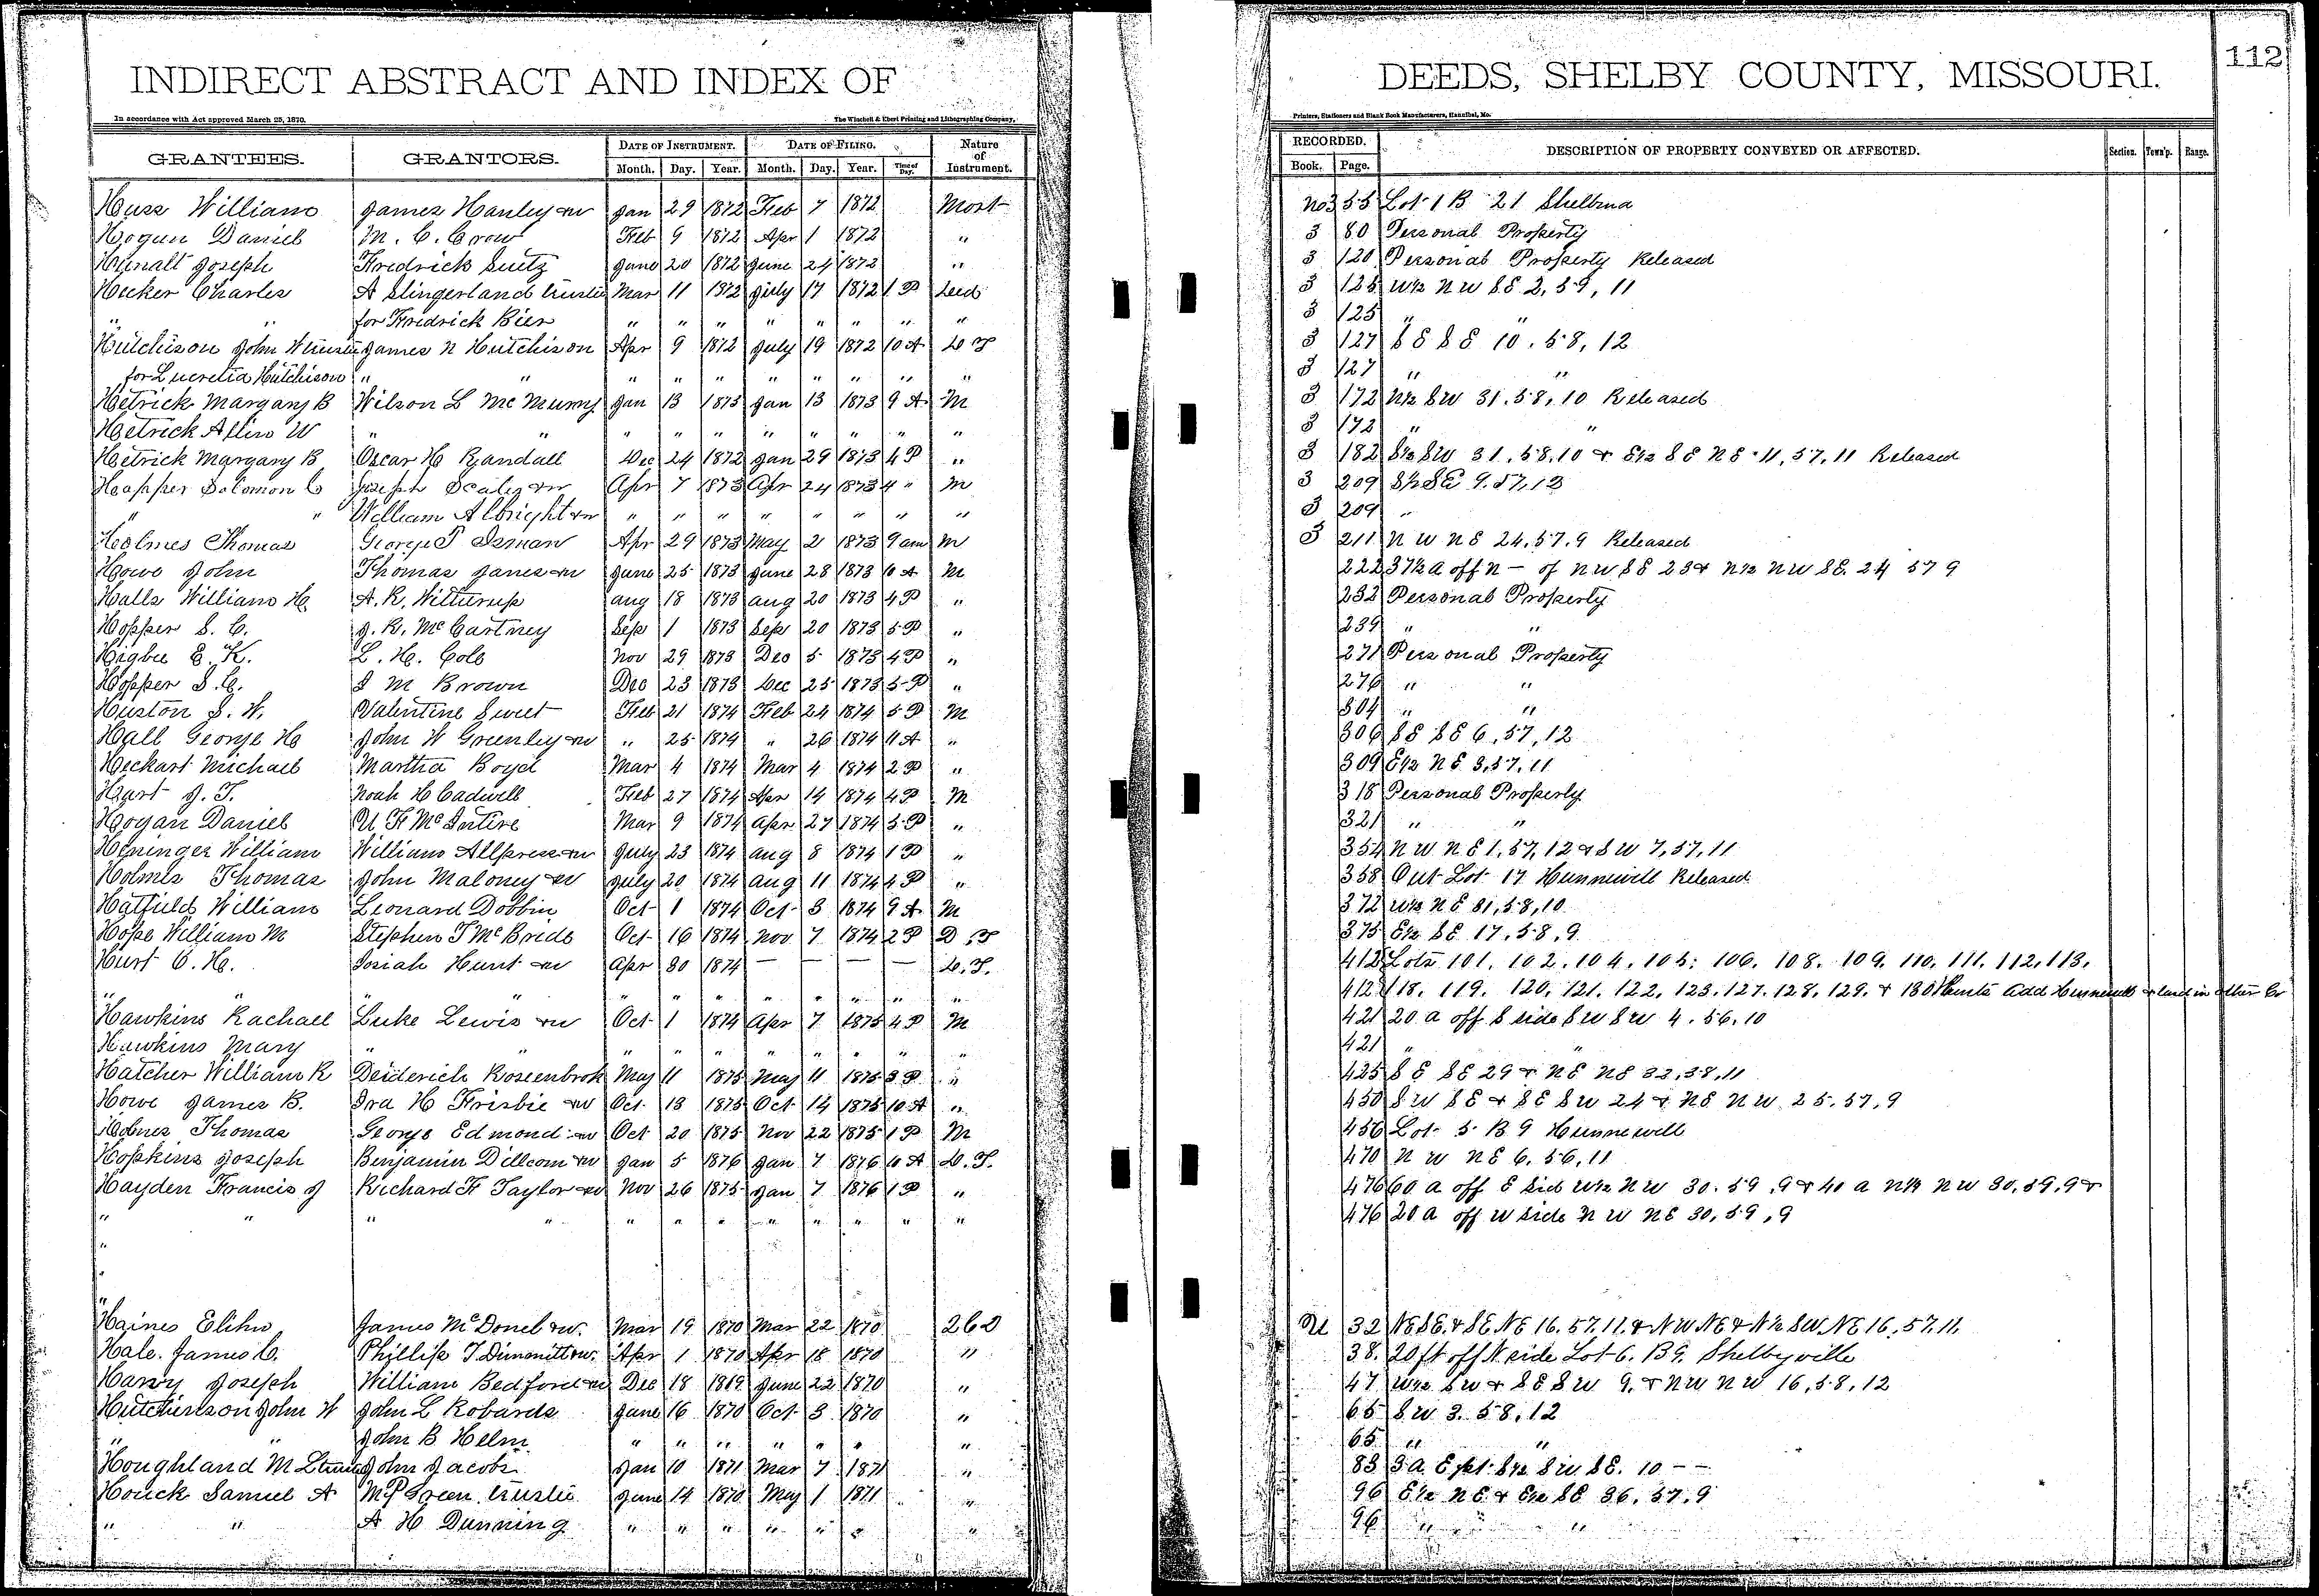 INDIRECT ABSTRACT AND INDEX OF
In accordance with Act approved March 25, 1870.
The Winchell & Ebert Printing and Lithographing Company,
GRANTEES. GRANTORS. DATE OF INSTRUMENT. DATE OF FILING. Nature of Instrument.
Month. Day. Year. Month. Day. Year. Time of Day.
Huss William James Hanley & w Jan 29 1872 Feb 7 1872 Mort
Hogun Daniel M. C. Crow Feb 9 1872 Apr 1 1872 "
Hunalt Joseph Fredrick Suitz June 20 1872 June 24 1872 "
Hecker Charles A Slingerland trustee Mar 11 1872 July 17 1872 1 P Deed
" " for Fredrick Bier " " " " " " " "
Hutchison John W trustee James N Hutchison Apr 9 1872 July 19 1872 10 A D T
for Lucretia Hutchison " " " " " " " " " "
Hetrick Margary B Wilson L McMurry Jan 13 1873 Jan 13 1873 9 A M
Hetrick Allin W " " " " " " " " " "
Hetrick Margary B Oscar H Randall Dec 24 1872 Jan 29 1873 4 P "
Hopper Solomon C Joseph Scales & w Apr 7 1873 Apr 24 1873 4 " M
" " William Albright & w " " " " " " " "
Holmes Thomas George T Isman Apr 29 1873 May 2 1873 9 am M
Howe John Thomas Janes & w June 25 1873 June 28 1873 10 A M
Halls William H A. R. Witturup Aug 18 1873 Aug 20 1873 4 P "
Hopper S. C. J. R. McCartney Sep 1 1873 Sep 20 1873 5 P "
Higbee E. K. L. H. Cole Nov 29 1873 Dec 5 1873 4 P "
Hopper S. C. I M Brown Dec 23 1873 Dec 25 1873 5 P "
Huston S. W. Valentine Sweet Feb 21 1874 Feb 24 1874 5 P M
Hall George H John W Greenley & w " 25 1874 " 26 1874 11 A "
Heckart Michael Martha Boyd Mar 4 1874 Mar 4 1874 2 P "
Hart J. T. Noah H Cadwell Feb 27 1874 Apr 14 1874 4 P M
Hogan Daniel U F McIntire Mar 9 1874 Apr 27 1874 5 P "
Heninger William William Allpress & w July 23 1874 Aug 8 1874 1 P "
Holmes Thomas John Maloney & w July 20 1874 Aug 11 1874 4 P "
Hatfield William Leonard Dobbin Oct 1 1874 Oct 3 1874 9 A M
Hope William M Stephen T McBride Oct 16 1874 Nov 7 1874 2 P D. T
Hurt C. H. Josiah Hunt & w Apr 30 1874 — — — — D. T.
" " " " " " " " " " " "
Hawkins Rachael Luke Lewis & w Oct 1 1874 Apr 7 1875 4 P M
Hawkins Mary " " " " " " " " " "
Hatcher William R Deiderich Rosenbrok May 11 1875 May 11 1875 3 P "
Howe James B. Ira H Frisbie & w Oct 13 1875 Oct 14 1875 10 A "
Holmes Thomas George Edmond & w Oct 20 1875 Nov 22 1875 1 P M
Hopkins Joseph Benjamin Dillcom & w Jan 5 1876 Jan 7 1876 10 A D. T.
Hayden Francis J Richard F Taylor & w Nov 26 1875 Jan 7 1876 1 P "
" " " " " " " " " " " "
"
"
Haines Elihu James McDonel & w. Mar 19 1870 Mar 22 1870 262
Hale. James C. Phillip T Dimmitt & w. Apr 1 1870 Apr 18 1870 "
Harvy Joseph William Bedford & w Dec 18 1869 June 22 1870 "
Hutchinson John W John L Robards June 16 1870 Oct 3 1870 "
" " John B Helm " " " " " " "
Houghland M L trustee John Jacobs Jan 10 1871 Mar 7 1871 "
Houck Samuel A M P Green trustee June 14 1870 May 1 1871 "
" " A H Dunning " " " " " " "
DEEDS, SHELBY COUNTY, MISSOURI.
112
Printers, Stationers and Blank Book Manufacturers, Hannibal, Mo.
RECORDED. DESCRIPTION OF PROPERTY CONVEYED OR AFFECTED. Section. Town'p. Range.
Book. Page.
No3 55 Lot 1 B 21 Shelbina
3 80 Personal Property
3 120 Personal Property Released
3 125 W½ N W S E 2, 59, 11
3 125 " "
3 127 S E S E 10. 58, 12
3 127 " "
3 172 N½ S W 31. 58, 10 Released
3 172 " "
3 182 S½ S W 31. 58. 10 & E½ S E N E 11, 57, 11 Released
3 209 S½ S E 9. 57, 12
3 209 "
3 211 N W N E 24. 57. 9 Released
222 37½ a off N — of N W S E 23 & N½ N W S E. 24 57 9
232 Personal Property
239 " "
271 Personal Property
276 " "
304 " "
306 S E S E 6, 57, 12
309 E½ N E 3, 57, 11
318 Personal Property
321 " "
354 N W N E 1, 57, 12 & S W 7, 57, 11
358 Out Lot 17 Hunnewell Released
372 W½ N E 31, 58, 10
375 E½ S E 17, 58, 9
412 Lots 101. 102. 104. 105: 106. 108. 109. 110. 111. 112, 113,
412 118. 119. 120. 121. 122. 123. 127. 128. 129. & 130 Hunts Add Hunnewell & land in other Co
421 20 a off S side S W S W 4. 56. 10
421 " "
425 S E S E 29 & N E N E 32, 58, 11
450 S W S E & S E S W 24 & N E N W 25. 57, 9
456 Lot 5 B 9 Hunnewell
470 N W N E 6. 56, 11
476 60 a off E Sid W½ N W 30. 59. 9 & 40 a N½ N W 30, 59, 9 &
476 20 a off W side N W N E 30, 59, 9
U 32 NE SE. & SE NE 16. 57. 11. & NW NE & N½ SW NE 16. 57. 11.
38. 20 ft off N side Lot 6. B 9. Shelbyville
47 W½ S W & S E S W 9. & N W N W 16, 58, 12
65 S W 3. 58. 12
65 " "
83 3 a E pt S½ S W S E. 10 — —
96 E½ N E & E½ S E 36. 57. 9
96 " "